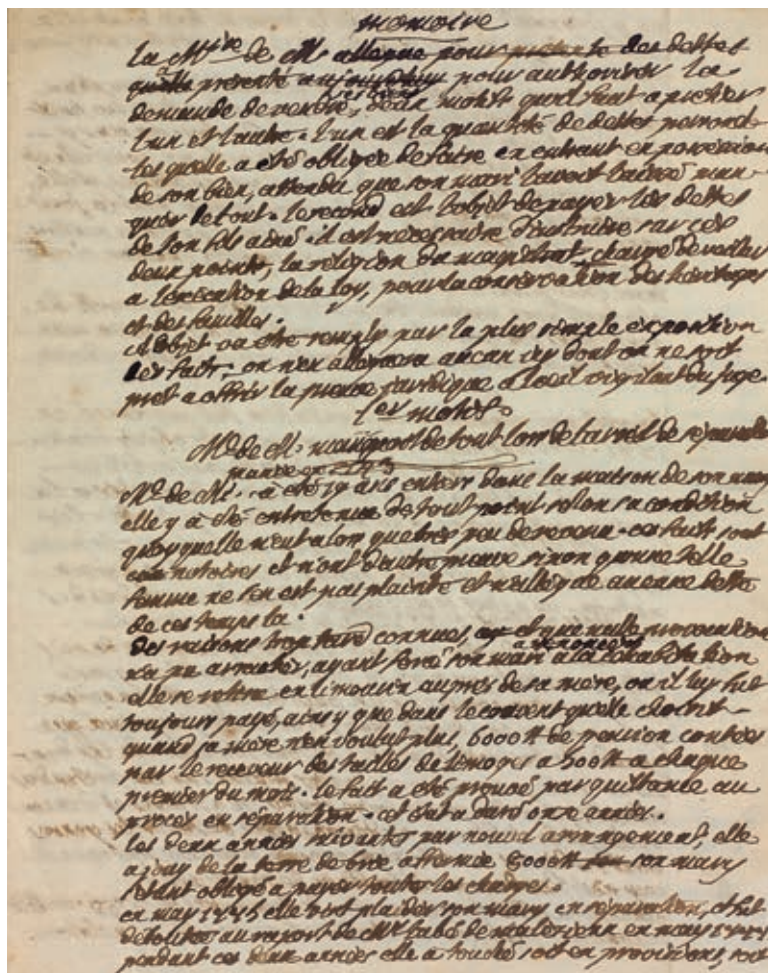 memoire
La M.ise de M. allegue pour pretexte des dettes
qu'elle presente aujourdhuy pour authoriser la
demande de vendre, deux motifs qu'il faut apretier
l'un et l'autre. l'un est la quantité de dettes personel
les quelle a été obligée de faire en entrant en possession
de son bien, attendu que son mari l'avoit laissé man
quer de tout. le second est l'objet de payer les dettes
de son fils ainé. il est necessaire d'instruire sur ces
deux points, la religion du magistrat chargé de veiller
a l'execution de la loy, pour la conservation des heritages
et des familles.
cet objet va etre remply par la plus simple exposition
des faits; on n'en alleguera aucun icy dont on ne soit
prest a offrir la preuve juridique a l'oeil vigilant du juge.
1er motif.
Me de M. manquoit de tout lors de l'arrest de separation
Me de M. a été 19 ans entiers dans la maison de son mary
elle y a été entretenue de tout point selon sa condition
quoy quelle n'eut alors que tres peu de revenu. ces faits sont
notoires et n'ont d'autre preuve sinon qu'une telle
femme ne s'en est pas plainte et n'allegue aucune dette
de ces temps la.
des raisons trop tard connues, et que nulle precaution
n'a pu arrester, ayant forcé son mari a renoncer a la cohabitation
elle se retira en limousin aupres de sa mere, ou il luy fut
toujours payé, ainsy que dans le couvent qu'elle choisit
quand sa mere n'en voulut plus, 6000 tt de pension contées
par le receveur des tailles de limoges a 500 tt a chaque
premier du mois. le fait a été prouvé par quittance au
proces en separation. cet etat a duré onze années.
les deux années suivantes par nouvel arrangement, elle
a jouy de la terre de brie affermée 6000 tt son mary
s'etant obligé a payer toutes les charges.
en may 1775 elle vint plaider son mary en separation, et fut
deboutée au raport de Mr l'abé de malezieux en may 1777
pendant ces deux années elle a touché soit en provisions, soit